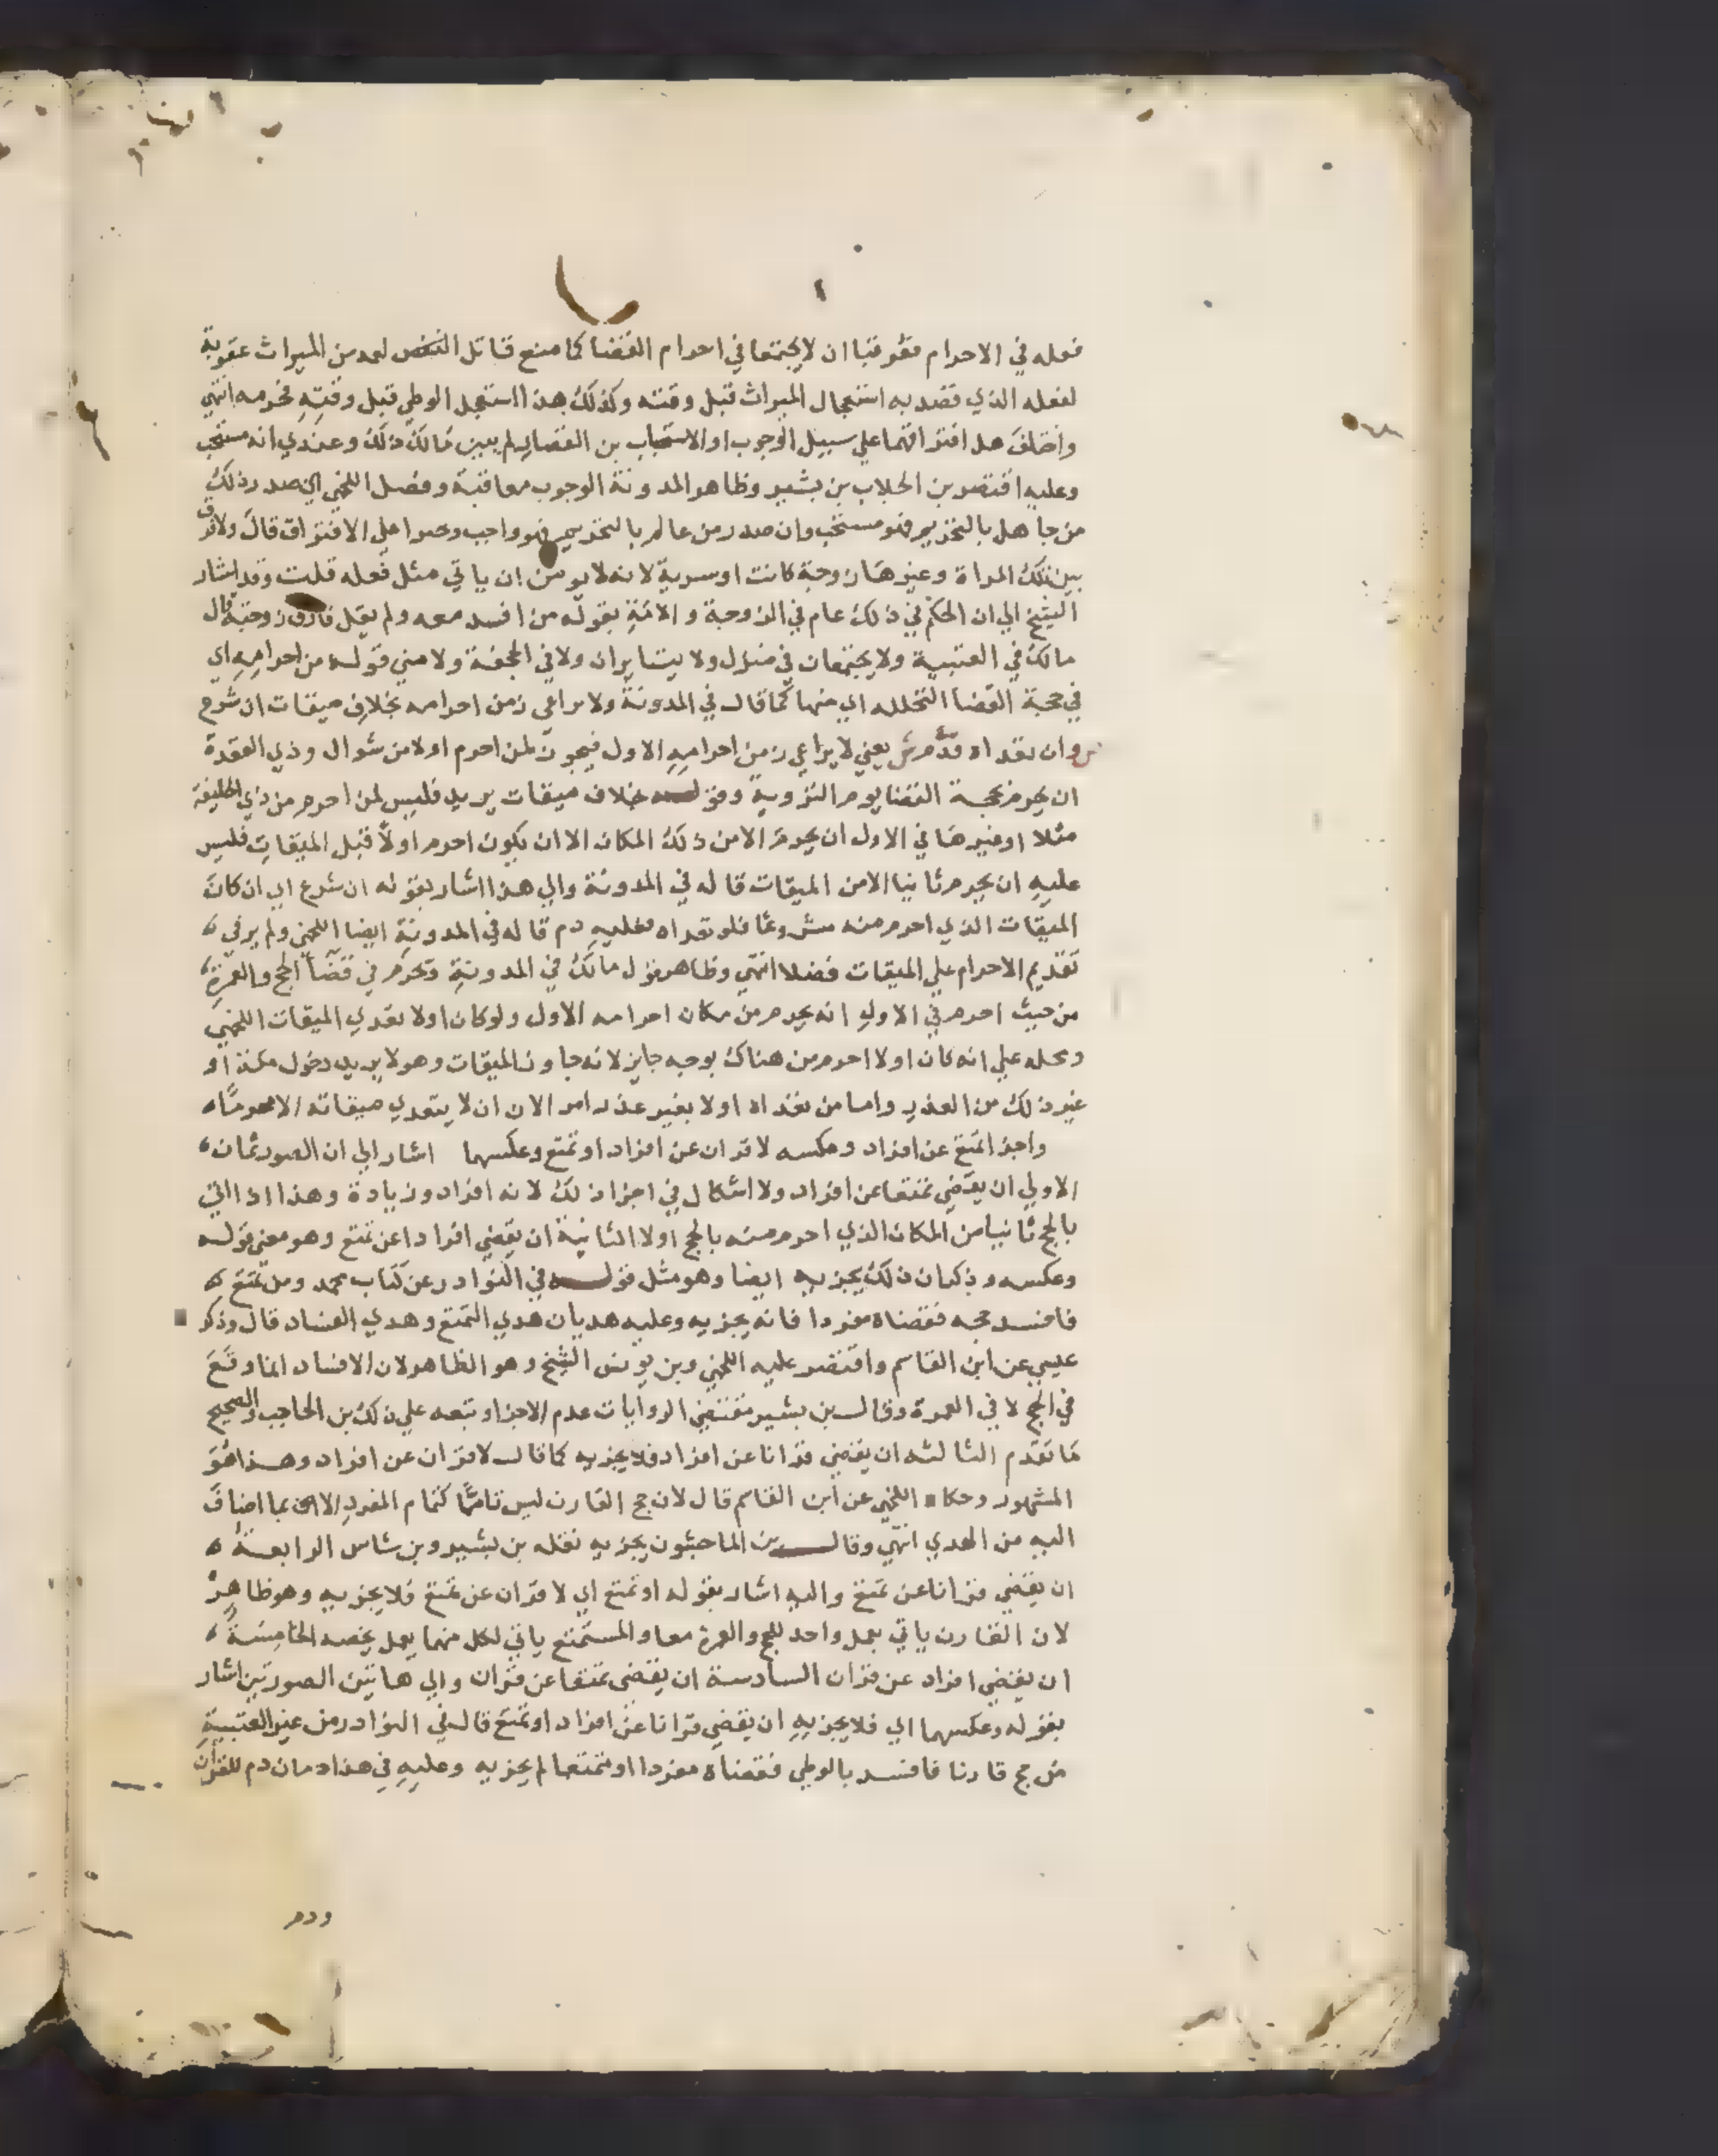 فعله في الاحرام فعوقبا ان لا يجتمعا في احرام القضا كما منع قاتل النفس لعمد من الميراث عقوبة
لفعله الذي قصد به استعجال الميراث قبل وقته وكذلك هذا استعجل الوطي قبل وقته فحرمه انتهي
واختلف هل افتراقهما علي سبيل الوجوب او الاستحباب بن القصار لم يبين مالك ذلك وعندي انه مستحب
وعليه اقتصر بن الجلاب بن بشير وظاهر المدونة الوجوب معاقبة وفصل اللخمي ان صدر ذلك
من جاهل بالتحريم فهو مستحب وان صدر من عالم بالتحريم فهو واجب وجبرا علي الافتراق قال ولا فرق
بين تلك المراة وغيرها زوجة كانت او سرية لانه لا يومن ان ياتي مثل فعله قلت وقد اشار
الشيخ الي ان الحكم في ذلك عام في الزوجة والامة بقوله من افسد معه ولم يقل فارق زوجته قال
مالك في العتبية ولا يجتمعان في منزل ولا يتسايران ولا في الجحفة ولا مني قوله من احرامه اي
في حجة القضا لتحلله اي منها كما قال في المدونة ولا يراعي زمن احرامه بخلاف ميقات ان شرع
ص وان تعداه فدم ش يعني لا يراعي زمن احرامه الاول فيجوز لمن احرم اولا من شوال وذي القعدة
ان يحرم بحجة القضا يوم التروية وقوله بخلاف ميقات يريد فليس لمن احرم من ذي الحليفة
مثلا او غيرها في الاول ان يحرم الا من ذلك المكان الا ان يكون احرم اولا قبل الميقات فليس
عليه ان يحرم ثانيا الا من الميقات قاله في المدونة والي هذا اشار بقوله ان شرع اي ان كان
الميقات الذي احرم منه مشروعا فلو تعداه فعليه دم قاله في المدونة ايضا اللخمي ولم ير في
تقديم الاحرام علي الميقات فضلا انتهي وظاهر قول مالك في المدونة وتحرم في قضا الحج والعمرة
من حيث احرم في الاول انه يحرم من مكان احرامه الاول ولو كان اولا تعدي الميقات اللخمي
ومحله علي انه كان اولا احرم من هناك بوجه جايز لانه جاوز الميقات وهو لا يريد دخول مكة او
غير ذلك من العذر واما من تعداه اولا بغير عذر امر الان ان لا يتعدي ميقاته الا محرما
واجزا تمتع عن افراد وعكسه لا قران عن افراد او تمتع وعكسهما اشار الي ان الصور ثمان
الاولي ان يقضي تمتعا عن افراد ولا اشكال في اجزا ذلك لانه افراد وزيادة وهذا اذا اتي
بالحج ثانيا من المكان الذي احرم منه بالحج اولا الثانية ان يقضي افرادا عن تمتع وهو معني قوله
وعكسه وذكر ان ذلك يجزيه ايضا وهو مثل قوله في النوادر عن كتاب محمد ومن تمتع
فافسد حجه فقضاه مفردا فانه يجزيه وعليه هديان هدي التمتع وهدي الفساد قال وذكر
عيسي عن ابن القاسم واقتصر عليه اللخمي وبن يونس الشيخ وهو الظاهر لان الافساد انما وقع
في الحج لا في العمرة وقال بن بشير مقتضي الروايات عدم الاجزا وتبعه علي ذلك بن الحاجب والصحيح
ما تقدم الثالثه ان يقضي قرانا عن افراد فلا يجزيه كما قال لا قران عن افراد وهذا هو
المشهور وحكاه اللخمي عن ابن القاسم قال لان حج القارن ليس تاما كتمام المفرد الا بما اضاف
اليه من الهدي انتهي وقال بن الماجشون يجزيه نقله بن بشير وبن شاس الرابعة
ان يقضي قرانا عن تمتع واليه اشار بقوله او تمتع اي لا قران عن تمتع فلا يجزيه وهو ظاهر
لان القارن ياتي بعمل واحد للحج والعمرة معا والمستمتع ياتي لكل منهما بعمل يخصه الخامسة
ان يقضي افراد عن قران السادسة ان يقضي تمتعا عن قران والي هاتين الصورتين اشار
بقوله وعكسهما اي فلا يجزيه ان يقضي قرانا عن افراد او تمتع قال في النوادر من غير العتبية
من حج قارنا فافسد بالوطي فقضاه مفردا او متمتعا لم يجزيه وعليه في هذا دمان دم للقران
ودم